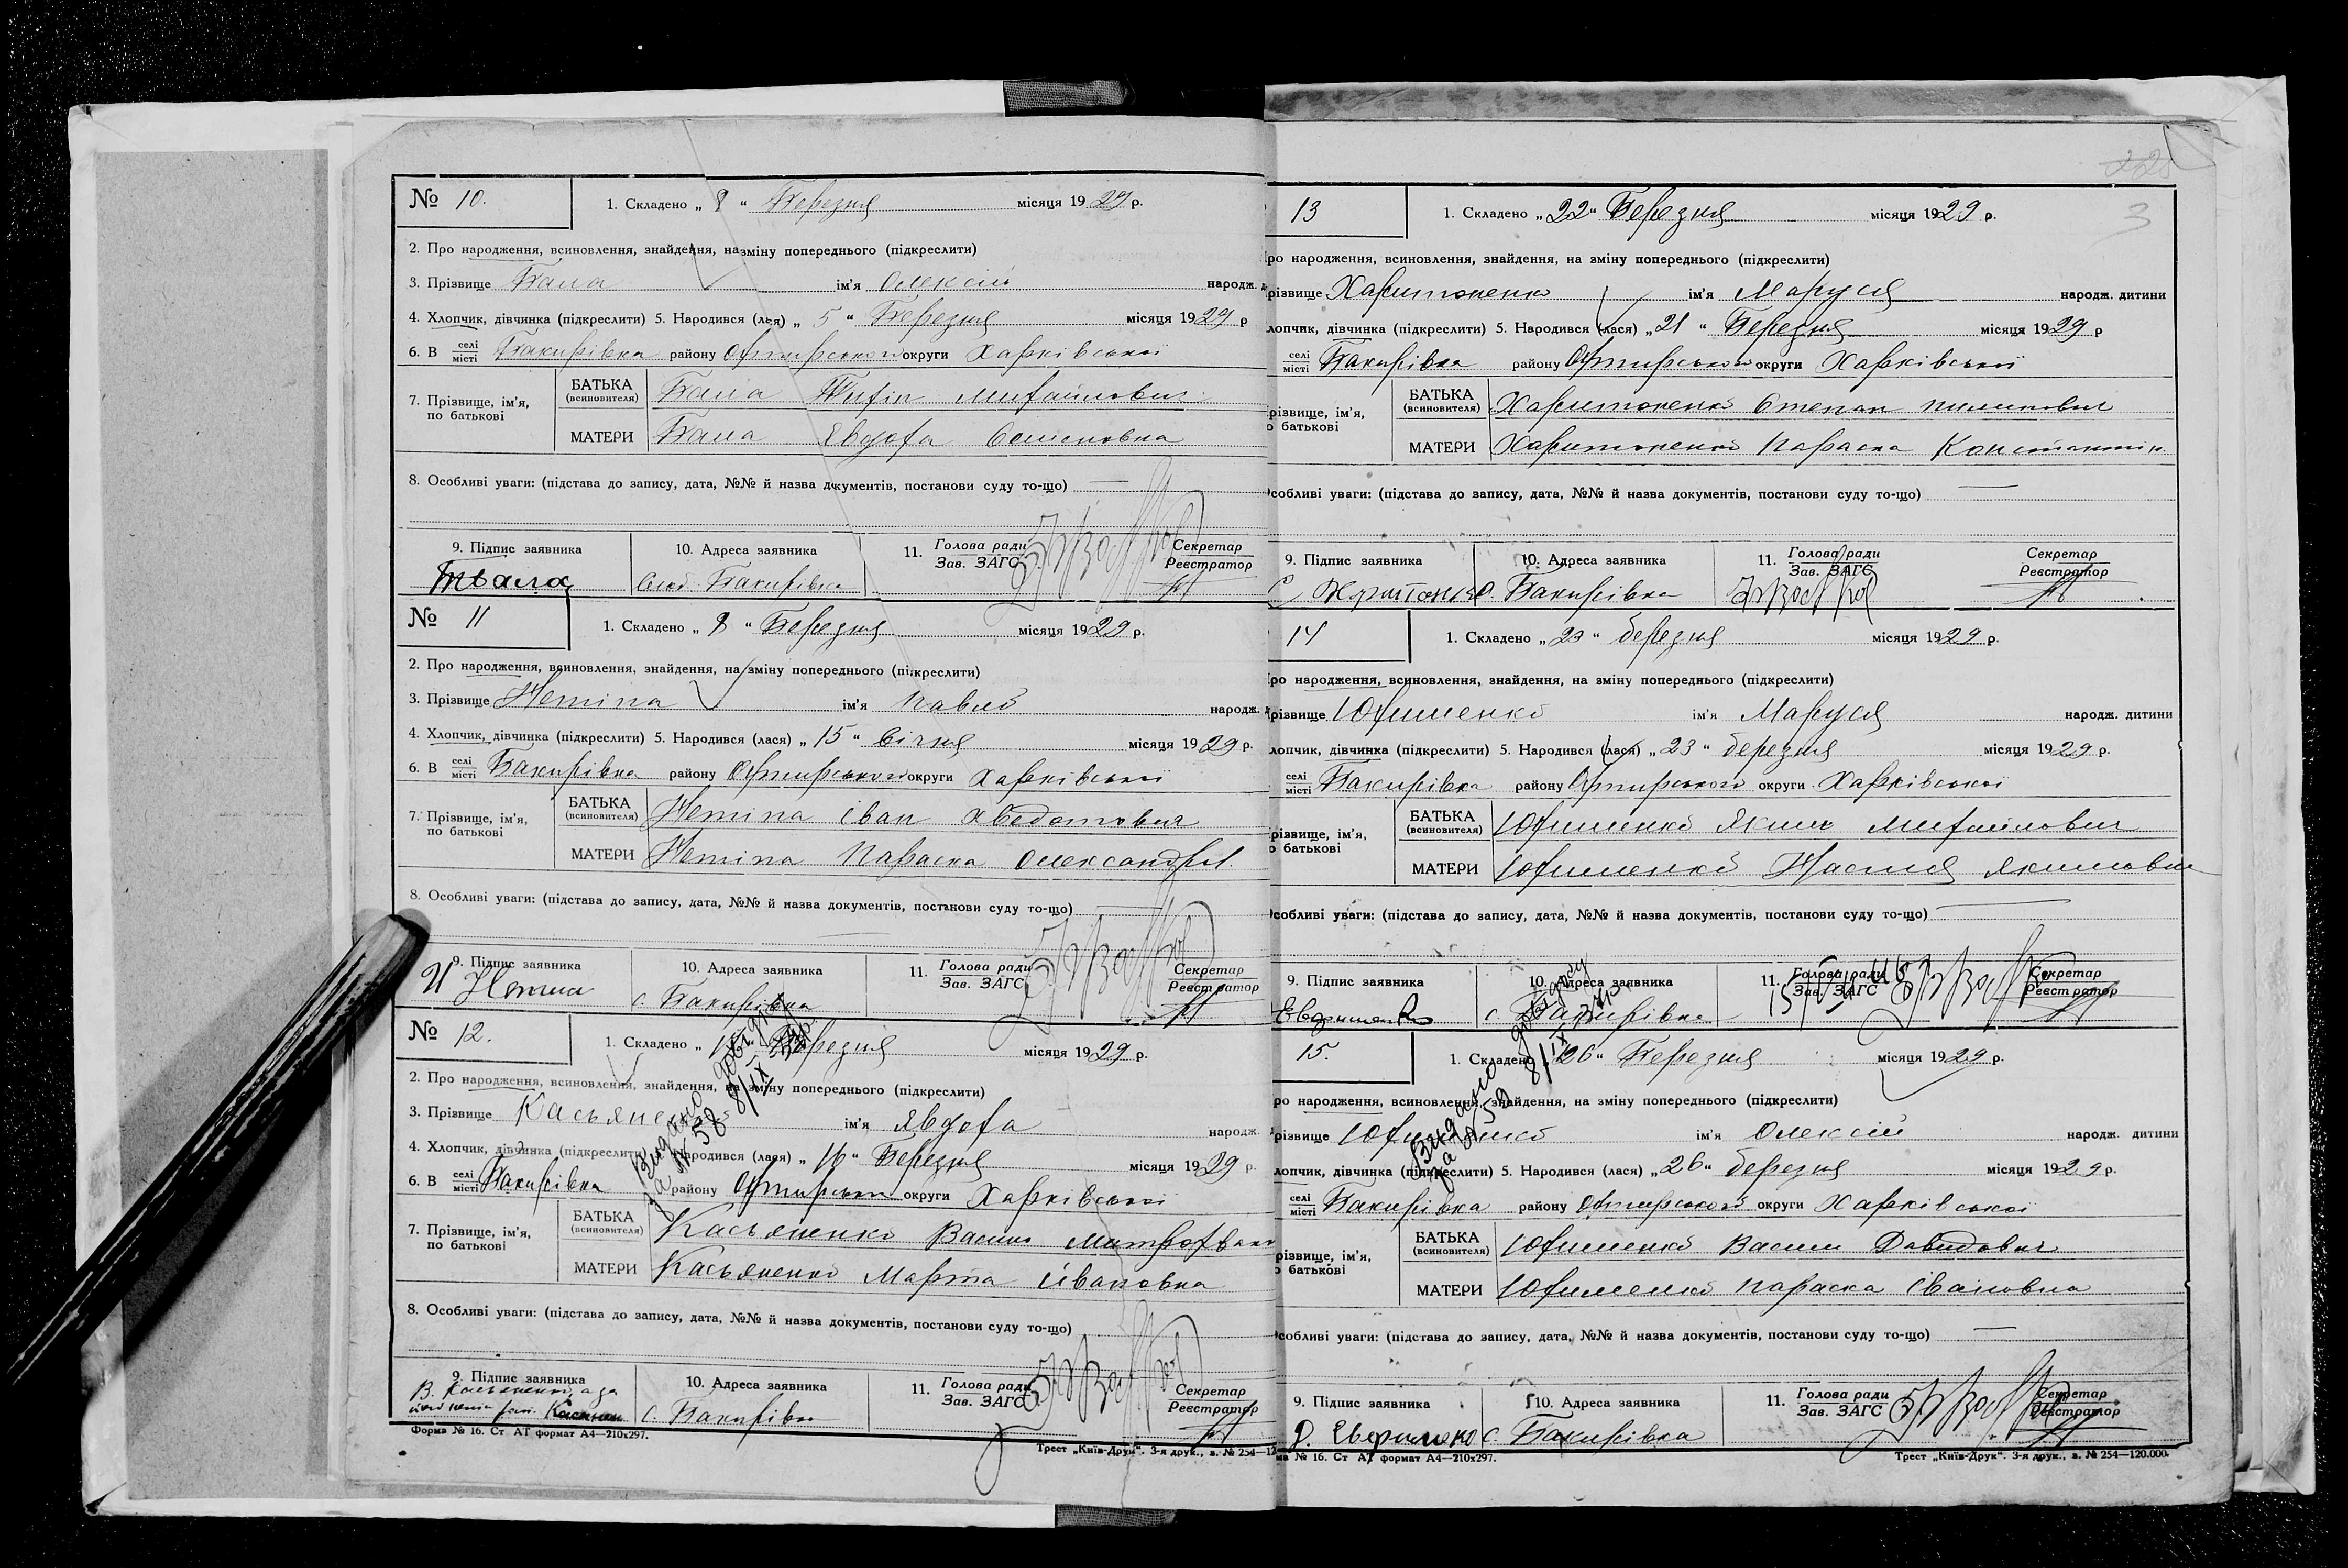 № 10. 1. Складено „ 8 “ Березня місяця 1929 р.
2. Про народження, всиновлення, знайдення, на зміну попереднього (підкреслити)
3. Прізвище Бала ім'я Олексій народж.
4. Хлопчик, дівчинка (підкреслити) 5. Народився (лася) „ 5 “ Березня місяця 1929 р
6. В селі місті Бакирівка району Охтирського округи Харківської
7. Прізвище, ім'я, по батькові
БАТЬКА (всиновителя) Бала Тифін Михайлович
МАТЕРИ Бала Явдоха Семеновна
8. Особливі уваги: (підстава до запису, дата, №№ й назва документів, постанови суду то-що)
9. Підпис заявника 10. Адреса заявника 11. Голова ради Зав. ЗАГС Секретар Реєстратор
Бакирівка
№ 11 1. Складено „ 8 “ Березня місяця 1929 р.
2. Про народження, всиновлення, знайдення, на зміну попереднього (підкреслити)
3. Прізвище Нетіпа ім'я Павло народж.
4. Хлопчик, дівчинка (підкреслити) 5. Народився (лася) „ 15 “ Січня місяця 1929 р.
6. В селі місті Бакирівка району Охтирського округи Харківської
7. Прізвище, ім'я, по батькові
БАТЬКА (всиновителя) Нетіпа Іван Хведотович
МАТЕРИ Нетіпа Параска Олександрів.
8. Особливі уваги: (підстава до запису, дата, №№ й назва документів, постанови суду то-що)
9. Підпис заявника 10. Адреса заявника 11. Голова ради Зав. ЗАГС Секретар Реєстратор
с. Бакирівка
№ 12. 1. Складено „ Березня місяця 1929 р.
2. Про народження, всиновлення, знайдення, на зміну попереднього (підкреслити)
3. Прізвище Касьяненко ім'я Явдоха народж.
4. Хлопчик, дівчинка (підкреслити) 5. Народився (лася) „ 16 “ Березня місяця 1929 р.
Видано довідку
за № 58 8/IX
6. В селі місті Бакирівка району Охтирськ округи Харківської
7. Прізвище, ім'я, по батькові
БАТЬКА (всиновителя) Касьяненко Василь Митрофван
МАТЕРИ Касьяненко Марта Івановна
8. Особливі уваги: (підстава до запису, дата, №№ й назва документів, постанови суду то-що)
9. Підпис заявника 10. Адреса заявника 11. Голова ради Зав. ЗАГС Секретар Реєстратор
с. Бакирівка
Форма № 16. Ст АТ формат А4—210х297. Трест „Київ-Друк“. 3-я друк., з. № 254—12
3
13 1. Складено „22“ Березня місяця 1929 р.
ро народження, всиновлення, знайдення, на зміну попереднього (підкреслити)
різвище Харитоненко ім'я Маруся народж. дитини
лопчик, дівчинка (підкреслити) 5. Народився (лася) „21 “ Березня місяця 1929 р
селі місті Бакирівка району Охтирського округи Харківської
різвище, ім'я, о батькові
БАТЬКА (всиновителя) Харитоненко Степан Пилипович
МАТЕРИ Харитоненко Параска Константін.
собливі уваги: (підстава до запису, дата, №№ й назва документів, постанови суду то-що)
9. Підпис заявника 10. Адреса заявника 11. Голова ради Зав. ЗАГС Секретар Реєстратор
с. Бакирівка
14 1. Складено „23 “ березня місяця 1929 р.
ро народження, всиновлення, знайдення, на зміну попереднього (підкреслити)
різвище Юхименко ім'я Маруся народж. дитини
лопчик, дівчинка (підкреслити) 5. Народився (лася) „23 “ березня місяця 1929 р.
селі місті Бакирівка району Охтирського округи Харківської
різвище, ім'я, о батькові
БАТЬКА (всиновителя) Юхименко Яким Михайлович
МАТЕРИ Юхименко Настя Якимовна
собливі уваги: (підстава до запису, дата, №№ й назва документів, постанови суду то-що)
9. Підпис заявника 10. Адреса заявника 11. Голова ради Зав. ЗАГС Секретар Реєстратор
с. Бакирівка
15. 1. Складено „26“ Березня місяця 1929 р.
ро народження, всиновлення, знайдення, на зміну попереднього (підкреслити)
різвище Юхименко ім'я Олексій народж. дитини
лопчик, дівчинка (підкреслити) 5. Народився (лася) „26“ березня місяця 1929 р.
Видано довідку
за № 59 8/IX
селі місті Бакирівка району Охтирського округи Харківської
різвище, ім'я, о батькові
БАТЬКА (всиновителя) Юхименко Василь Давидович
МАТЕРИ Юхименко Параска Івановна
собливі уваги: (підстава до запису, дата, №№ й назва документів, постанови суду то-що)
9. Підпис заявника 10. Адреса заявника 11. Голова ради Зав. ЗАГС Секретар Реєстратор
с. Бакирівка
ма № 16. Ст АТ формат А4—210х297. Трест „Київ-Друк“. 3-я друк., з. № 254—120.000.